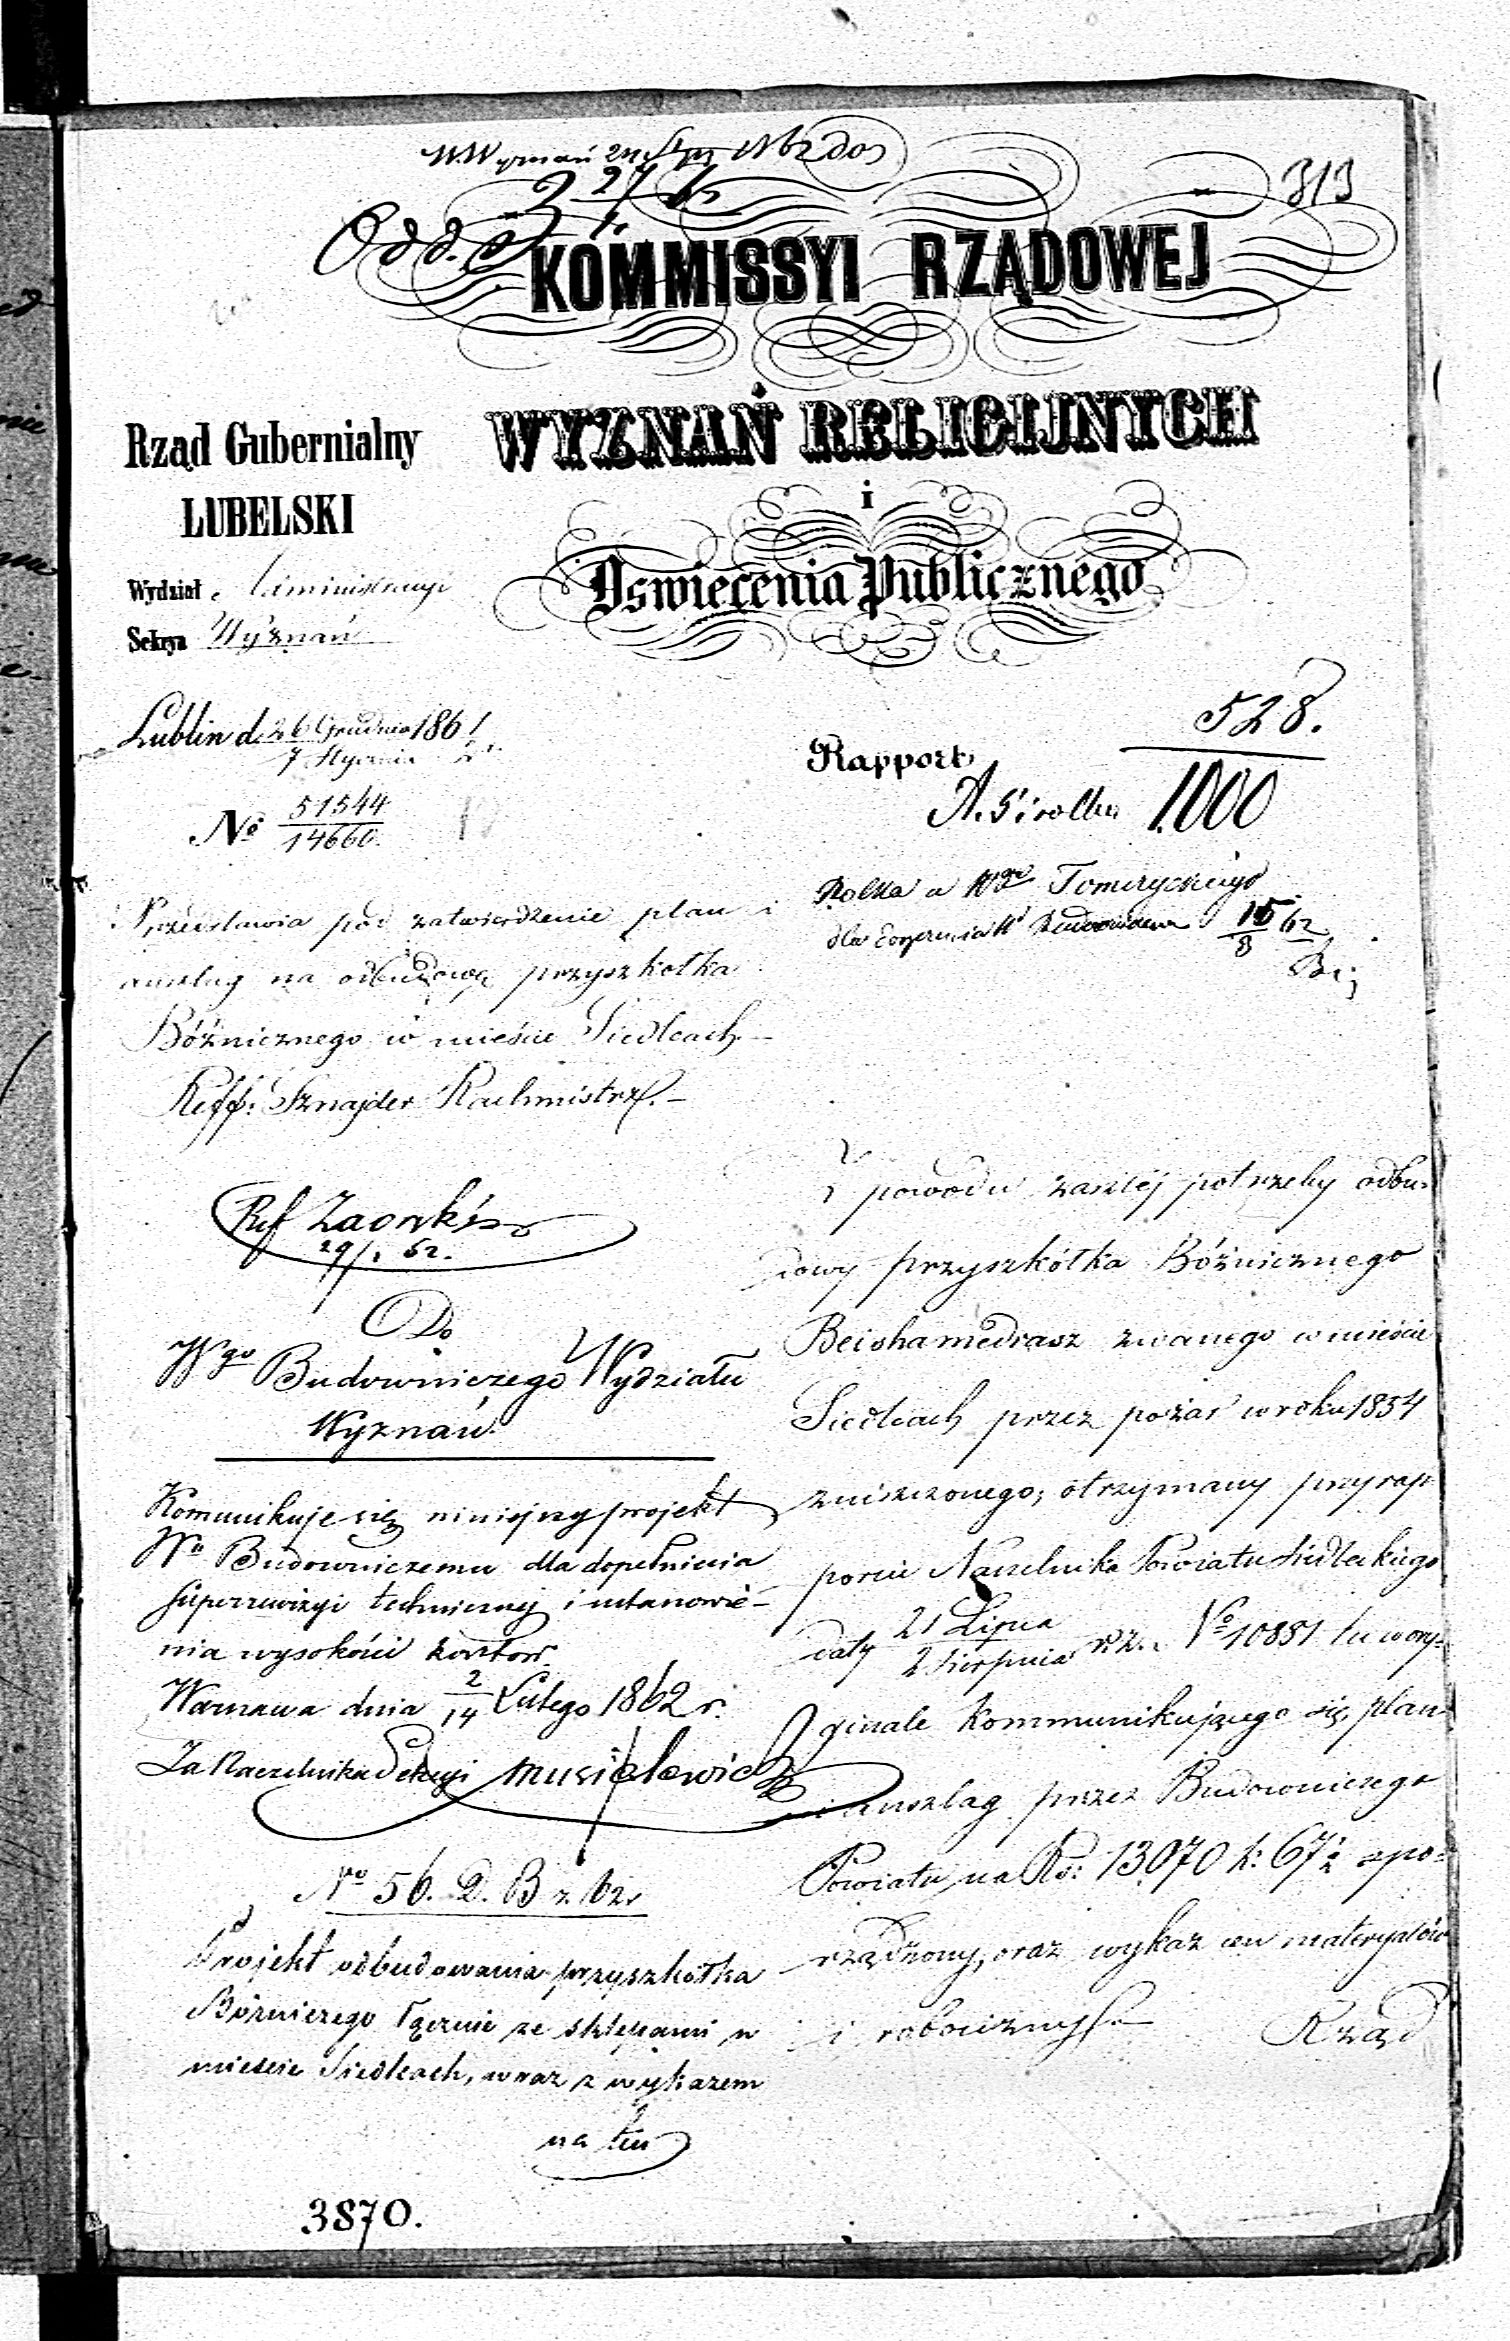 313
KOMMISSYI RZĄDOWEJ
WYZNAŃ RELIGIJNYCH
i
Oswiecenia Publicznego
Rząd Gubernialny
LUBELSKI
Wydział Administracyi
Sekcya Wyznań
Lublin d. 26 Grudnia 1861
7 Stycznia 2
№ 51544
14660.
Przedstawia pod zatwierdzenie plan i
anszlag na odbudowę przyszkołka
Bóżnicznego w mieście Siedlcach. –
Reff: Sznajder Rachmistrz. –
Ref
29/1 62.
Do
Wgo Budowniczego Wydziału
Wyznań.
Komunikuje się niniejszy projekt
Wu Budowniczemu dla dopełnienia
superrewizyi technicznej i ustanowie-
nia wysokości kosztów.
Warszawa dnia 2/14 Lutego 1862 r.
Za Naczelnika Sekcyi Musielewicz
No 56. D. B z 62 r
Projekt odbudowania przyszkółka
Bóżniczego łącznie ze sklepami w
mieście Siedlcach, wraz z wykazem
na ten
3870.
528.
Rapport
1000
15/8 62
Z powodu zaszłej potrzeby odbu-
dowy przyszkółka Bóżnicznego
Beishamedrasz zwanego w mieście
Siedlcach przez pożar w roku 1854
zniszczonego, otrzymany przy rap-
porcie Naczelnika Powiatu Siedleckiego
daty 21 Lipca
2 Sierpnia r. z. No 10851 tu w ory-
ginale kommunikującego się, plan
i anszlag przez Budowniczego
Powiatu na Rs: 13070 k: 67½ spo-
rządzony, oraz wykaz cen materyałów
i robocizny. –
Rząd